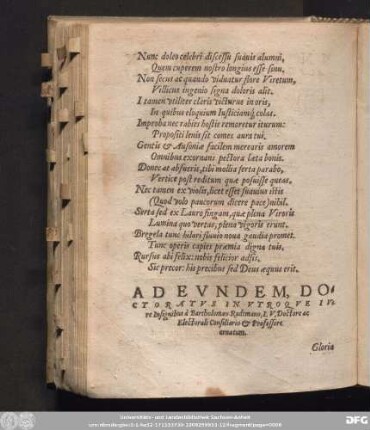 Nunc doleo celebri discessu suauis alumni,
Quem cuperem nostro longius esse sinu.
Non secus ac quando viduatur flore Viretum,
Villicus ingenio signa doloris alit.
I tamen vtiliter claris victurus in oris,
In quibus eloquium Iusticiamq́; colas.
Improba nec rabies hostis remoretur iturum:
Propositi lenis sit comes aura tui,
Gentis & Ausoniæ facilem merearis amorem
Omnibus exornans pectora læta bonis.
Donec at abfueris, tibi mollia serta parabo,
Vertice post reditum quæ posuisse queas.
Nec tamen ex violis, licet esset suauius istis
(Quod volo paucorum dicere pace) nihil.
Serta sed ex Lauro fingam, quæ plena Viroris
Lumina quo vertas, plena vigoris erunt.
Bregela tunc hilari fluuio noua gaudia promet.
Tunc operis capies præmia digna tuis.
Rursus abi felix: nobis felicior adsis,
Sic precor: his precibus sed Deus æquus erit.
AD EVNDEM, DO-
CTORATVS IN VTROQVE IV-
re Insignibus à Bartholomæo Rudinano, I. V. Doctore ac
Electorali Consiliario & Professore
ornatum.
Gloria
Universitäts- und Landesbibliothek Sachsen-Anhalt
DFG